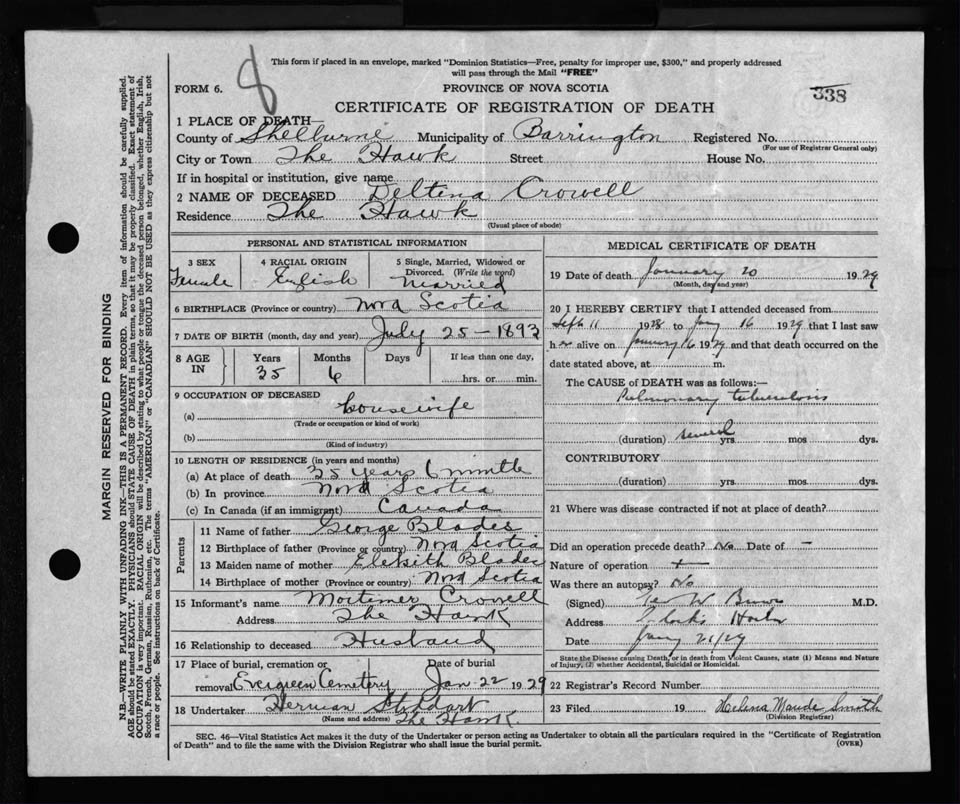 8
This form if placed in an envelope, marked "Dominion Statistics—Free, penalty for improper use, $300," and properly addressed
will pass through the Mail "FREE"
FORM 6.
PROVINCE OF NOVA SCOTIA
338
CERTIFICATE OF REGISTRATION OF DEATH
1 PLACE OF DEATH—
County of Shelburne Municipality of Barrington Registered No.
(For use of Registrar General only)
City or Town The Hawk Street House No.
If in hospital or institution, give name
2 NAME OF DECEASED Deltena Crowell
Residence The Hawk
(Usual place of abode)
MARGIN RESERVED FOR BINDING
N.B.—WRITE PLAINLY WITH UNFADING INK—THIS IS A PERMANENT RECORD. Every item of information should be carefully supplied.
AGE should be stated EXACTLY. PHYSICIANS should STATE CAUSE OF DEATH in plain terms, so that it may be properly classified. Exact statement of
OCCUPATION is very important. RACIAL ORIGIN will be described by stating to what people or tongue the deceased person belonged, whether English, Irish,
Scotch, French, German, Russian, Ruthenian, etc. The terms "AMERICAN" or "CANADIAN" SHOULD NOT BE USED as they express citizenship but not
a race or people. See instructions on back of Certificate.
PERSONAL AND STATISTICAL INFORMATION
3 SEX
Female
4 RACIAL ORIGIN
English
5 Single, Married, Widowed or
Divorced. (Write the word)
Married
6 BIRTHPLACE (Province or country) Nova Scotia
7 DATE OF BIRTH (month, day and year) July 25 - 1893
8 AGE IN
Years
35
Months
6
Days
If less than one day,
hrs. or min.
9 OCCUPATION OF DECEASED
(a) housewife
(Trade or occupation or kind of work)
(b)
(Kind of industry)
10 LENGTH OF RESIDENCE (in years and months)
(a) At place of death 35 years 6 month
(b) In province Nova Scotia
(c) In Canada (if an immigrant) Canada
Parents
11 Name of father George Blades
12 Birthplace of father (Province or country) Nova Scotia
13 Maiden name of mother Blades
14 Birthplace of mother (Province or country) Nova Scotia
15 Informant's name Mortimer Crowell
Address The Hawk
16 Relationship to deceased Husband
17 Place of burial, cremation or Date of burial
removal Evergreen Cemetery Jan 22 1929
18 Undertaker Herman
(Name and address) The Hawk
MEDICAL CERTIFICATE OF DEATH
19 Date of death January 20 1929
(Month, day and year)
20 I HEREBY CERTIFY that I attended deceased from
Sept 11 1928 to Jany 16 1929 that I last saw
her alive on January 16 1929 and that death occurred on the
date stated above, at m.
The CAUSE of DEATH was as follows:—
Pulmonary tuberculosis
(duration) several yrs. mos. dys.
CONTRIBUTORY
(duration) yrs. mos. dys.
21 Where was disease contracted if not at place of death?
Did an operation precede death? No Date of —
Nature of operation
Was there an autopsy? No
(Signed) W M.D.
Address Clarks Harbor
Date Jany 21/29
State the Disease causing Death, or in death from Violent Causes, state (1) Means and Nature
of Injury, (2) whether Accidental, Suicidal or Homicidal.
22 Registrar's Record Number
23 Filed 19 Helena Maude Smith
(Division Registrar)
SEC. 46—Vital Statistics Act makes it the duty of the Undertaker or person acting as Undertaker to obtain all the particulars required in the "Certificate of Registration
of Death" and to file the same with the Division Registrar who shall issue the burial permit.
(OVER)